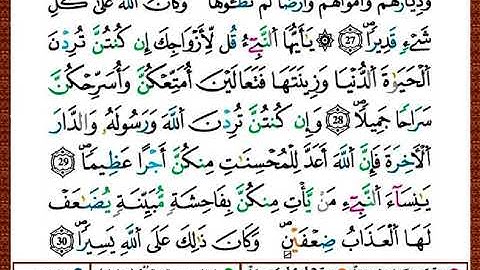 وَدِيَٰرَهُمْ وَأَمْوَٰلَهُمْ وَأَرْضًا لَّمْ تَطَـُٔوهَا وَكَانَ ٱللَّهُ عَلَىٰ كُلِّ
شَىْءٍ قَدِيرًا ٢٧ يَٰٓأَيُّهَا ٱلنَّبِىٓءُ قُل لِّأَزْوَٰجِكَ إِن كُنتُنَّ تُرِدْنَ
ٱلْحَيَوٰةَ ٱلدُّنْيَا وَزِينَتَهَا فَتَعَالَيْنَ أُمَتِّعْكُنَّ وَأُسَرِّحْكُنَّ
سَرَاحًا جَمِيلًا ٢٨ وَإِن كُنتُنَّ تُرِدْنَ ٱللَّهَ وَرَسُولَهُۥ وَٱلدَّارَ
ٱلْأَخِرَةَ فَإِنَّ ٱللَّهَ أَعَدَّ لِلْمُحْسِنَٰتِ مِنكُنَّ أَجْرًا عَظِيمًا ٢٩
يَٰنِسَآءَ ٱلنَّبِىٓءِ مَن يَأْتِ مِنكُنَّ بِفَٰحِشَةٍ مُّبَيِّنَةٍ يُضَٰعَفْ
لَهَا ٱلْعَذَابُ ضِعْفَيْنِ وَكَانَ ذَٰلِكَ عَلَى ٱللَّهِ يَسِيرًا ٣٠